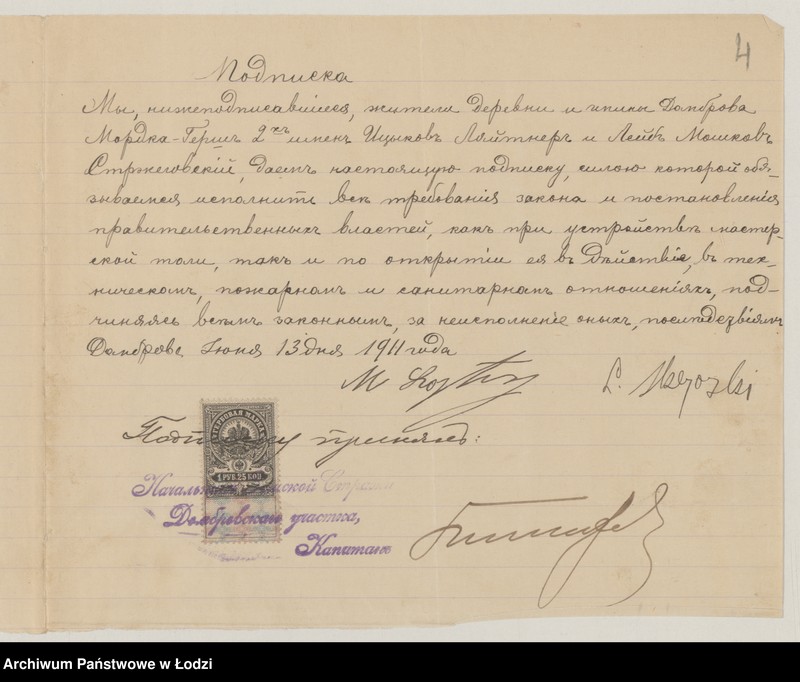 4
Подписка
Мы, нижеподписавшіеся, жители деревни и гмины Домброва
Мордка-Герш 2хъ именъ Ицыковъ Ляйтнеръ и Лейбъ Мошковъ
Стржеговскій, даемъ настоящую подписку, силою которой обя-
зываемся исполнить всѣ требованія закона и постановленія
правительственныхъ властей, какъ при устройствѣ мастер-
ской толи, такъ и по открытіи ея въ дѣйствіе, въ тех-
ническомъ, пожарномъ и санитарномъ отношеніяхъ, под-
чиняясь всѣмъ законнымъ, за неисполненіе оныхъ, послѣдствіямъ
Домброва Іюня 13 дня 1911 года
M
L.
Подписку принялъ:
ГЕРБОВАЯ МАРКА
1 РУБ. 25 КОП
Начальникъ Земской Стражи
Домбровскаго участка,
Капитанъ
Archiwum Państwowe w Łodzi